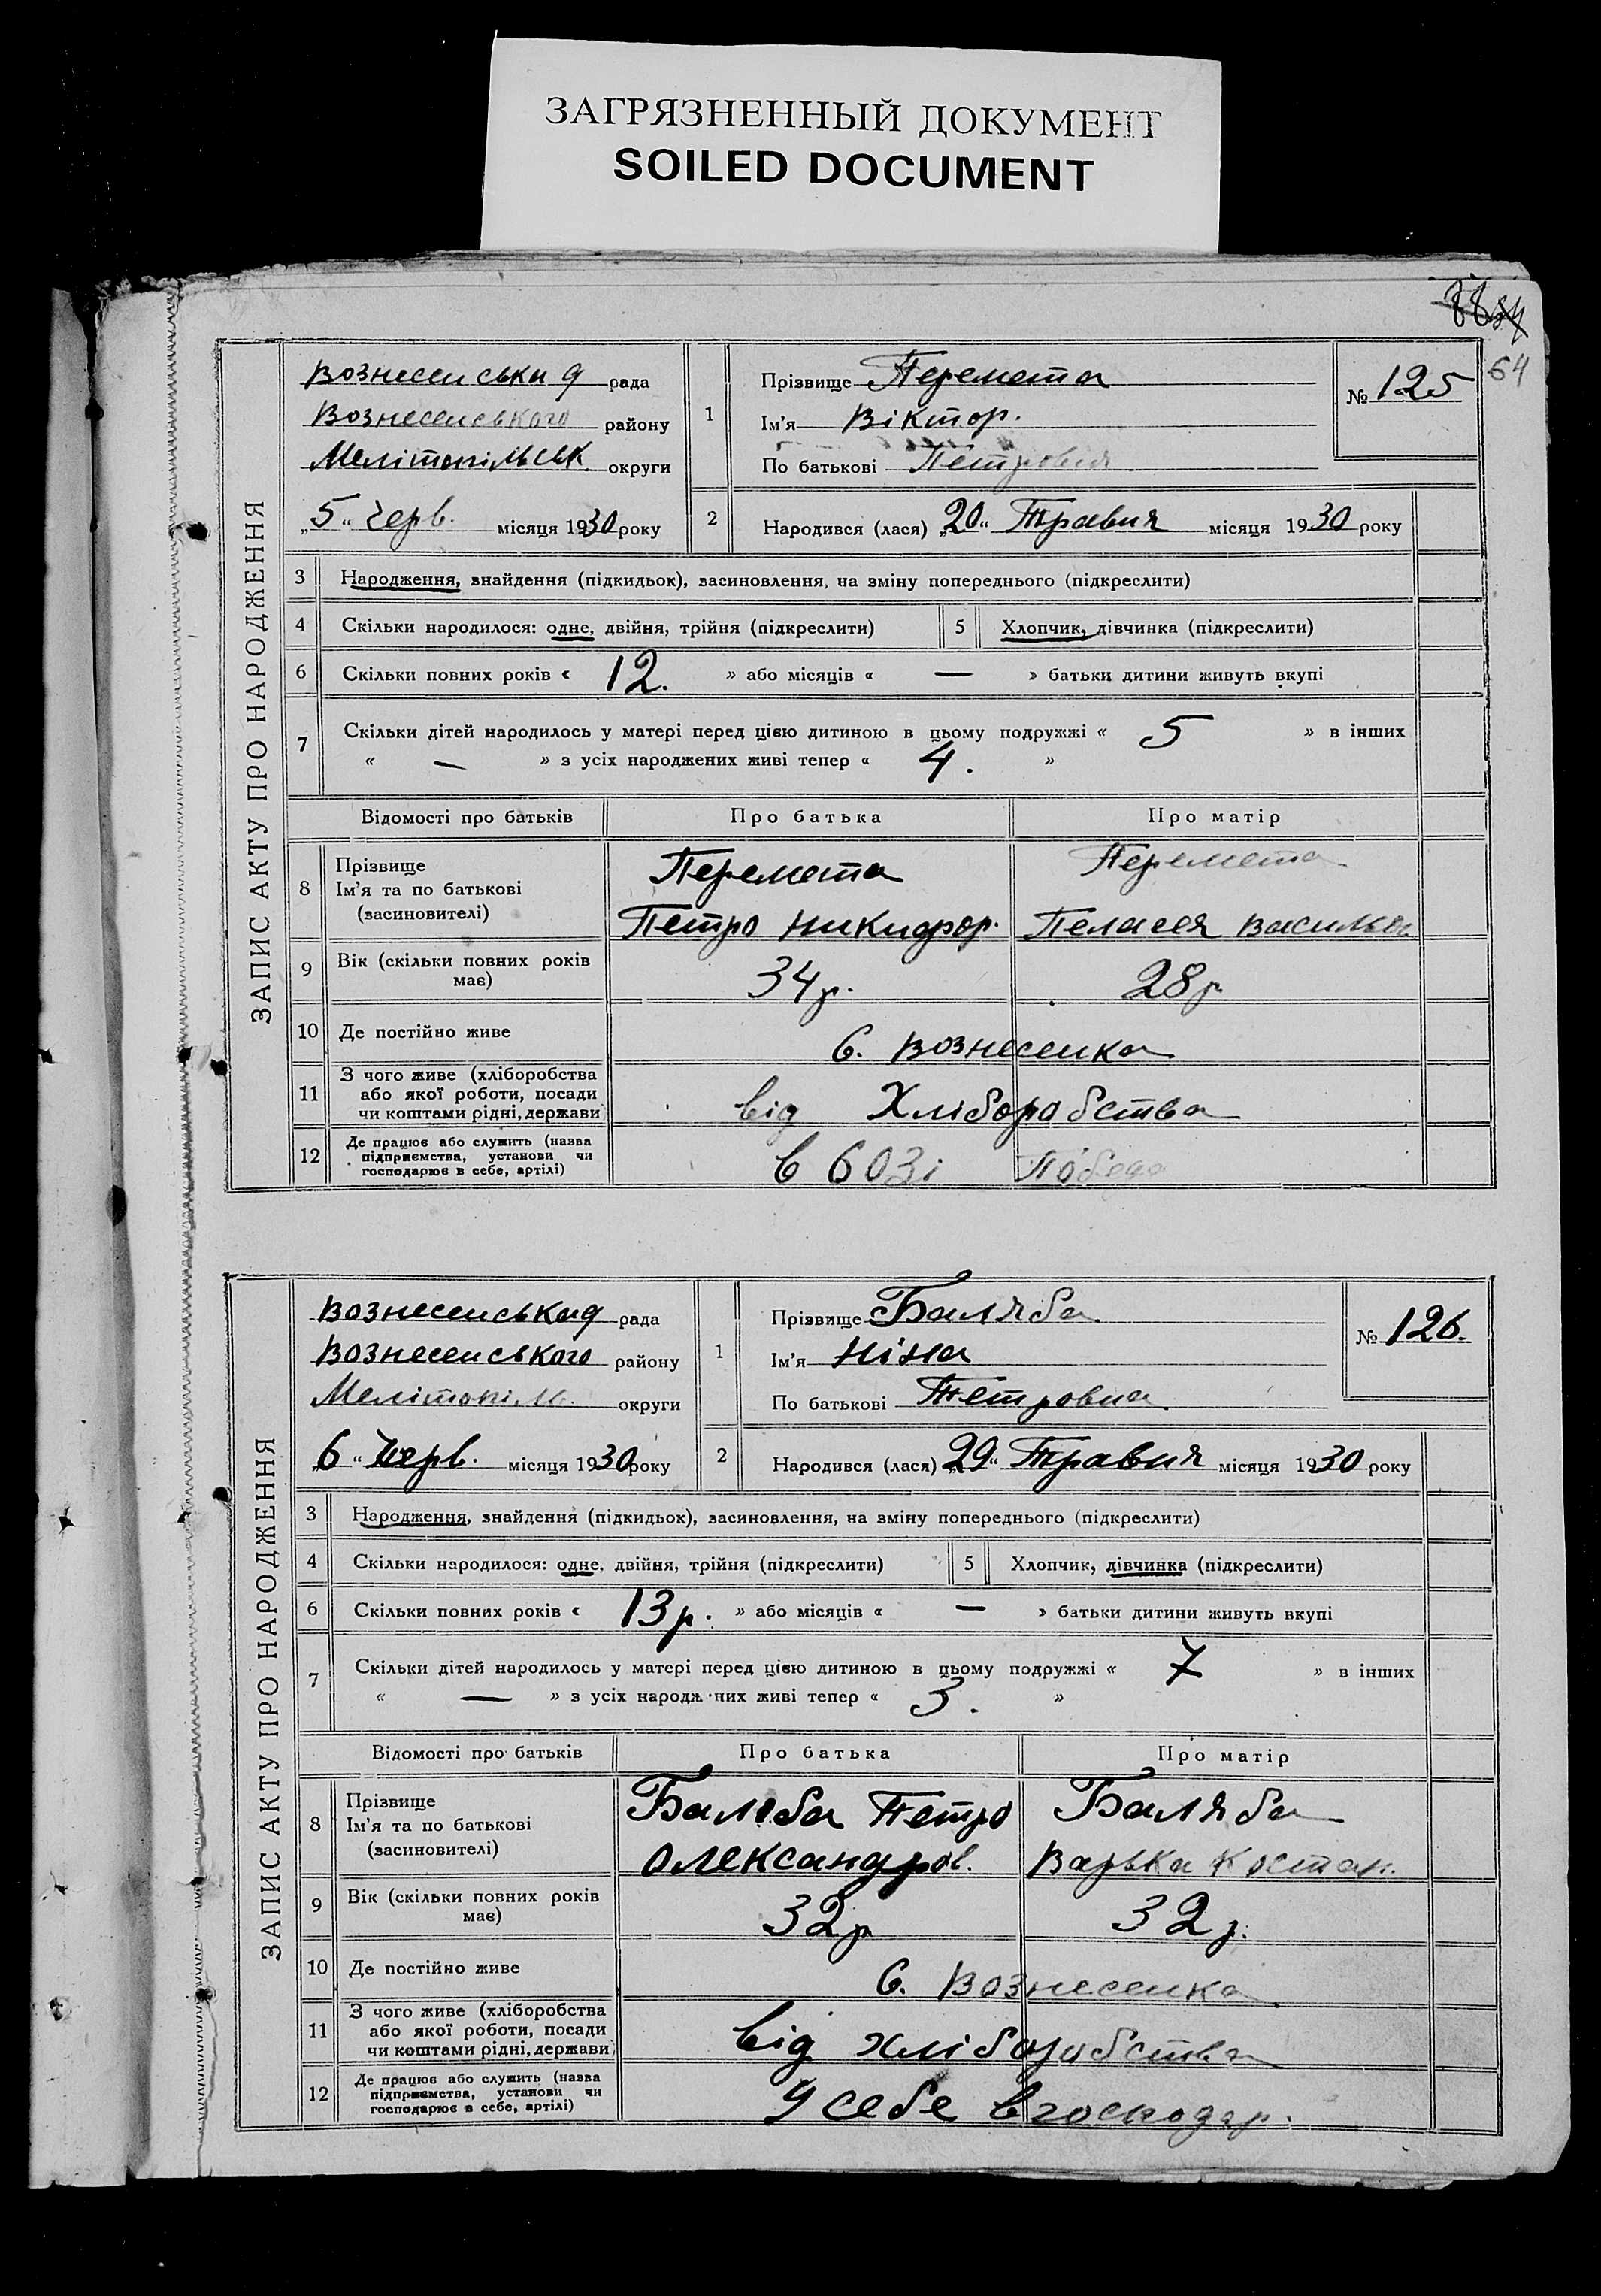 ЗАГРЯЗНЕННЫЙ ДОКУМЕНТ
SOILED DOCUMENT
64
ЗАПИС АКТУ ПРО НАРОДЖЕННЯ
Вознесенська рада
Вознесенського району
Мелітопільськ округи
„5“ Черв. місяця 1930 року
1
Прізвище Перемета
Ім'я Віктор.
По батькові Петрович
№ 125
2
Народився (лася) „20“ Травня місяця 1930 року
3 Народження, знайдення (підкидьок), засиновлення, на зміну попереднього (підкреслити)
4 Скільки народилося: одне, двійня, трійня (підкреслити) 5 Хлопчик, дівчинка (підкреслити)
6 Скільки повних років « 12. » або місяців « — » батьки дитини живуть вкупі
7 Скільки дітей народилось у матері перед цією дитиною в цьому подружжі « 5 » в інших
« — » з усіх народжених живі тепер « 4. »
Відомості про батьків Про батька Про матір
8 Прізвище Ім'я та по батькові (засиновителі)
Перемета Перемета
Петро Никифор. Пелагея Васильев
9 Вік (скільки повних років має) 34 р. 28 р
10 Де постійно живе с. Вознесенка
11 З чого живе (хліборобства або якої роботи, посади чи коштами рідні, держави) від Хліборобства
12 Де працює або служить (назва підприємства, установи чи господарює в себе, артілі) в созі Победа
ЗАПИС АКТУ ПРО НАРОДЖЕННЯ
Вознесенська рада
Вознесенського району
Мелітопіль округи
„6“ Черв. місяця 1930 року
1
Прізвище Баляба
Ім'я Ніна
По батькові Петровна
№ 126.
2
Народився (лася) „29“ Травня місяця 1930 року
3 Народження, знайдення (підкидьок), засиновлення, на зміну попереднього (підкреслити)
4 Скільки народилося: одне, двійня, трійня (підкреслити) 5 Хлопчик, дівчинка (підкреслити)
6 Скільки повних років « 13 р. » або місяців « — » батьки дитини живуть вкупі
7 Скільки дітей народилось у матері перед цією дитиною в цьому подружжі « 7 » в інших
« — » з усіх народжених живі тепер « 3. »
Відомості про батьків Про батька Про матір
8 Прізвище Ім'я та по батькові (засиновителі)
Баляба Петро Баляба
Олександров. Варька Костан.
9 Вік (скільки повних років має) 32 р 32 р.
10 Де постійно живе с. Вознесенка
11 З чого живе (хліборобства або якої роботи, посади чи коштами рідні, держави) від хліборобства
12 Де працює або служить (назва підприємства, установи чи господарює в себе, артілі) У себе в господар.